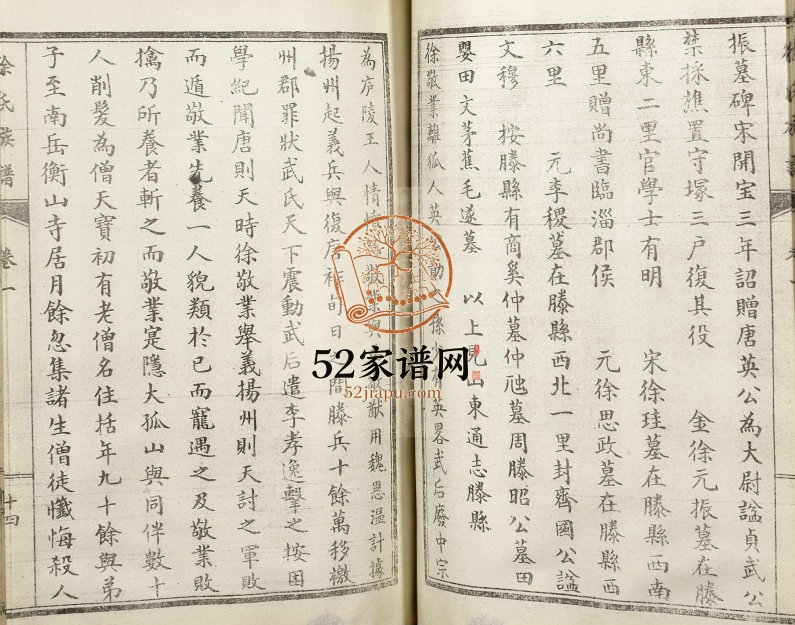 振墓碑宋開宝三年詔贈唐英公為大尉諡貞武公
禁採樵置守塚三戸復其役 金徐元振墓在滕
縣東二里官學士有明 宋徐珪墓在滕縣西南
五里贈尚書臨淄郡侯 元徐思政墓在滕縣西
六里 元李稷墓在滕縣西北一里封齊國公諡
文穆 按滕縣有商奚仲墓仲虺墓周滕昭公墓田
嬰田文茅蕉毛遂墓 以上見山東通志滕縣
徐敬業離狐人英 勣 孫 有英畧武后廢中宗
為庐陵王人情 敬業 猷用魏恩温計據
揚州起義兵興復唐祚旬日 間勝兵十餘萬移檄
州郡罪狀武氏天下震動武后遣李孝逸擊之按困
學紀聞唐則天時徐敬業舉義揚州則天討之軍敗
而遁敬業先養一人貌類於己而寵遇之及敬業敗
擒乃所養者斬之而敬業寔隱大孤山與同伴數十
人削髮為僧天寶初有老僧名住括年九十餘與弟
子至南岳衡山寺居月餘忽集諸生僧徒懺悔殺人
徐氏族譜 卷一 十四
52家谱网
52jiapu.com